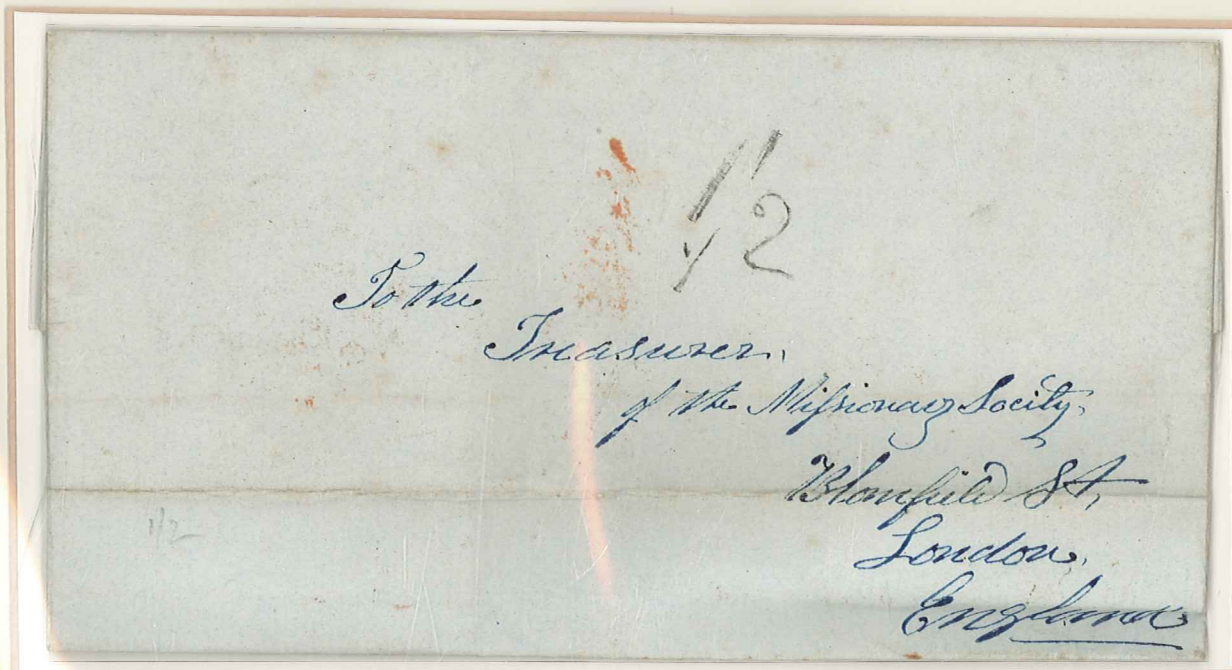 1/2
To the
Treasurer.
of the Missionary Socity,
Blomfield St,
London.
England
1/2